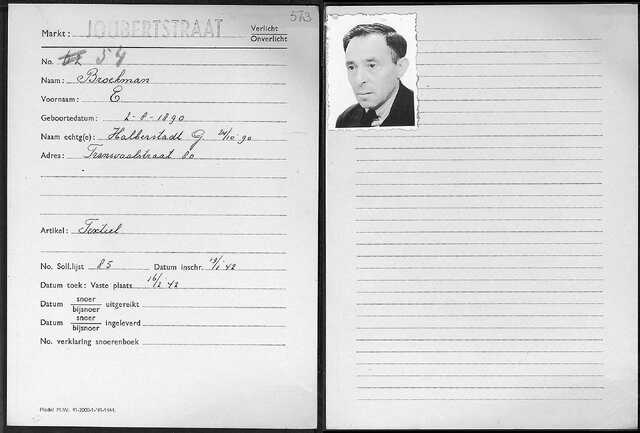 573
Markt: JOUBERTSTRAAT Verlicht
Onverlicht
No. 54
Naam: Brockman
Voornaam: E
Geboortedatum: 2-8-1890
Naam echtg(e): Halberstadt G 24/10 90
Adres: Transvaalstraat 80
Artikel: Textiel
No. Soll.lijst 85 Datum inschr. 13/1 42
Datum toek: Vaste plaats 16/2 42
Datum snoer
bijsnoer uitgereikt
Datum snoer
bijsnoer ingeleverd
No. verklaring snoerenboek